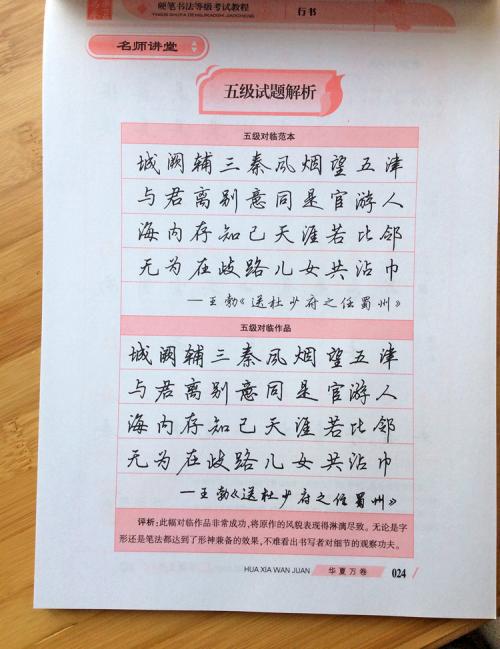 硬笔书法等级考试教程
YINGBI SHUFA DENGJIKAOSHI JIAOCHENG
行书
名师讲堂
五级试题解析
五级对临范本
城阙辅三秦风烟望五津
与君离别意同是宦游人
海内存知己天涯若比邻
无为在歧路儿女共沾巾
—王勃《送杜少府之任蜀州》
五级对临作品
城阙辅三秦风烟望五津
与君离别意同是宦游人
海内存知己天涯若比邻
无为在歧路儿女共沾巾
—王勃《送杜少府之任蜀州》
评析:此幅对临作品非常成功,将原作的风貌表现得淋漓尽致。无论是字
形还是笔法都达到了形神兼备的效果,不难看出书写者对细节的观察功夫。
HUA XIA WAN JUAN 华夏万卷 024